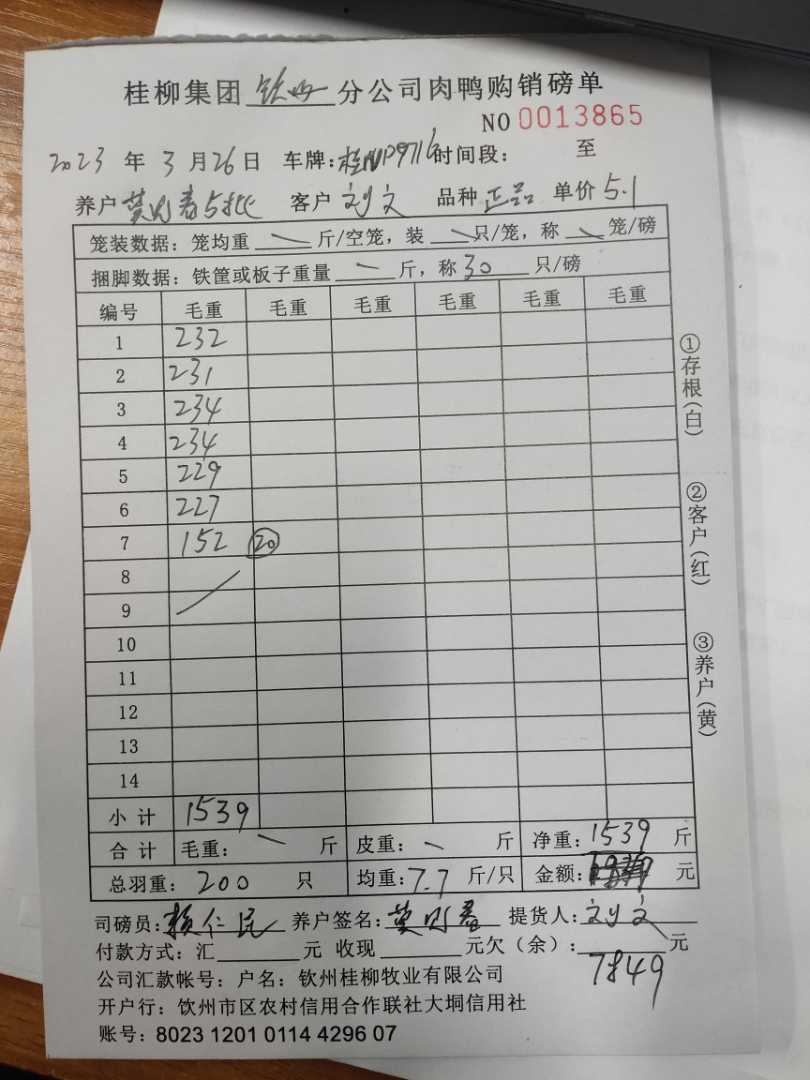 桂柳集团 钦州 分公司肉鸭购销磅单
NO 0013865
2023 年 3 月 26 日 车牌: 时间段: 至
养户 莫则春5批 客户 刘文 品种 正品 单价 5.1
笼装数据: 笼均重 ＼ 斤/空笼, 装 ＼ 只/笼, 称 ＼ 笼/磅
捆脚数据: 铁筐或板子重量 ＼ 斤, 称 30 只/磅
编号 毛重 毛重 毛重 毛重 毛重 毛重
1 232
2 231
3 234
4 234
5 229
6 227
7 152 20
8
9
10
11
12
13
14
小计 1539
合计 毛重: ＼ 斤 皮重: ＼ 斤 净重: 1539 斤
总羽重: 200 只 均重: 7.7 斤/只 金额: 元
司磅员: 赖仁民 养户签名: 莫则春 提货人: 刘文
付款方式: 汇 元 收现 元欠（余）: 元
7849
公司汇款帐号: 户名: 钦州桂柳牧业有限公司
开户行: 钦州市区农村信用合作联社大垌信用社
账号: 8023 1201 0114 4296 07
①存根(白)
②客户(红)
③养户(黄)